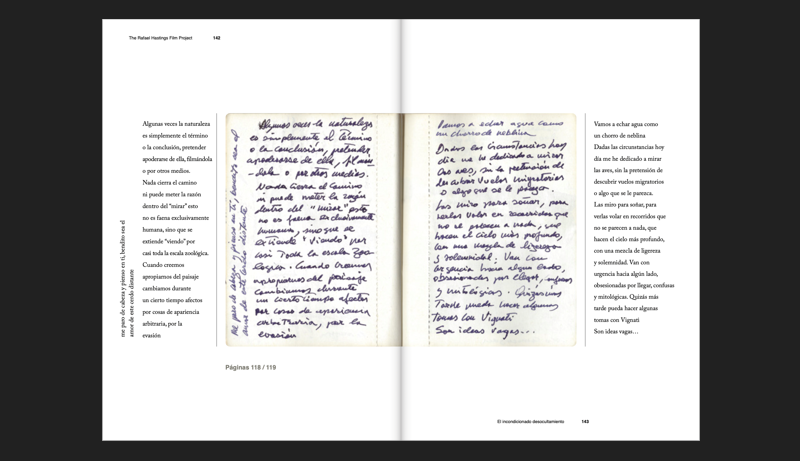 The Rafael Hastings Film Project 142
Algunas veces la naturaleza
es simplemente el término
o la conclusión, pretender
apoderarse de ella, filmándola
o por otros medios.
Nada cierra el camino
ni puede meter la razón
dentro del "mirar" esto
no es faena exclusivamente
humana, sino que se
extiende "viendo" por
casi toda la escala zoológica.
Cuando creemos
apropiarnos del paisaje
cambiamos durante
un cierto tiempo afectos
por cosas de apariencia
arbitraria, por la
evasión
me paro de cabeza y pienso en ti, bendito sea el
amor de este cerdo distante
Algunas veces la naturaleza
es simplemente el término
o la conclusión, pretender
apoderarse de ella, filman
-dola o por otros medios.
Nada cierra el camino
ni puede meter la razón
dentro del "mirar" esto
no es faena exclusivamente
humana, sino que se
extiende "viendo" por
casi toda la escala zoo
lógica. Cuando creemos
apropiarnos del paisaje
cambiamos durante
un cierto tiempo afectos
por cosas de apariencia
arbitraria, por la
evasión
Me paro de cabeza y pienso en ti, bendito sea el
amor de este cerdo distante
Páginas 118 / 119
Vamos a echar agua como
un chorro de neblina
Dadas las circunstancias hoy
día me he dedicado a mirar
las aves, sin la pretensión de
descubrir vuelos migratorios
o algo que se le parezca.
Las miro para soñar, para
verlas volar en recorridos que
no se parecen a nada, que
hacen el cielo más profundo,
con una mezcla de ligereza
y solemnidad. Van con
urgencia hacia algún lado,
obsesionadas por llegar, confusas
y mitológicas. Quizás más
tarde pueda hacer algunas
tomas con Vignati
Son ideas vagas...
Vamos a echar agua como
un chorro de neblina
Dadas las circunstancias hoy
día me he dedicado a mirar
las aves, sin la pretensión
de descubrir vuelos migratorios
o algo que se le parezca.
Las miro para soñar, para
verlas volar en recorridos que
no se parecen a nada, que
hacen el cielo más profundo,
con una mezcla de ligereza
y solemnidad. Van con
urgencia hacia algún lado,
obsesionadas por llegar, confusas
y mitológicas. Quizás más
tarde pueda hacer algunas
tomas con Vignati
Son ideas vagas…
El incondicionado desocultamiento 143